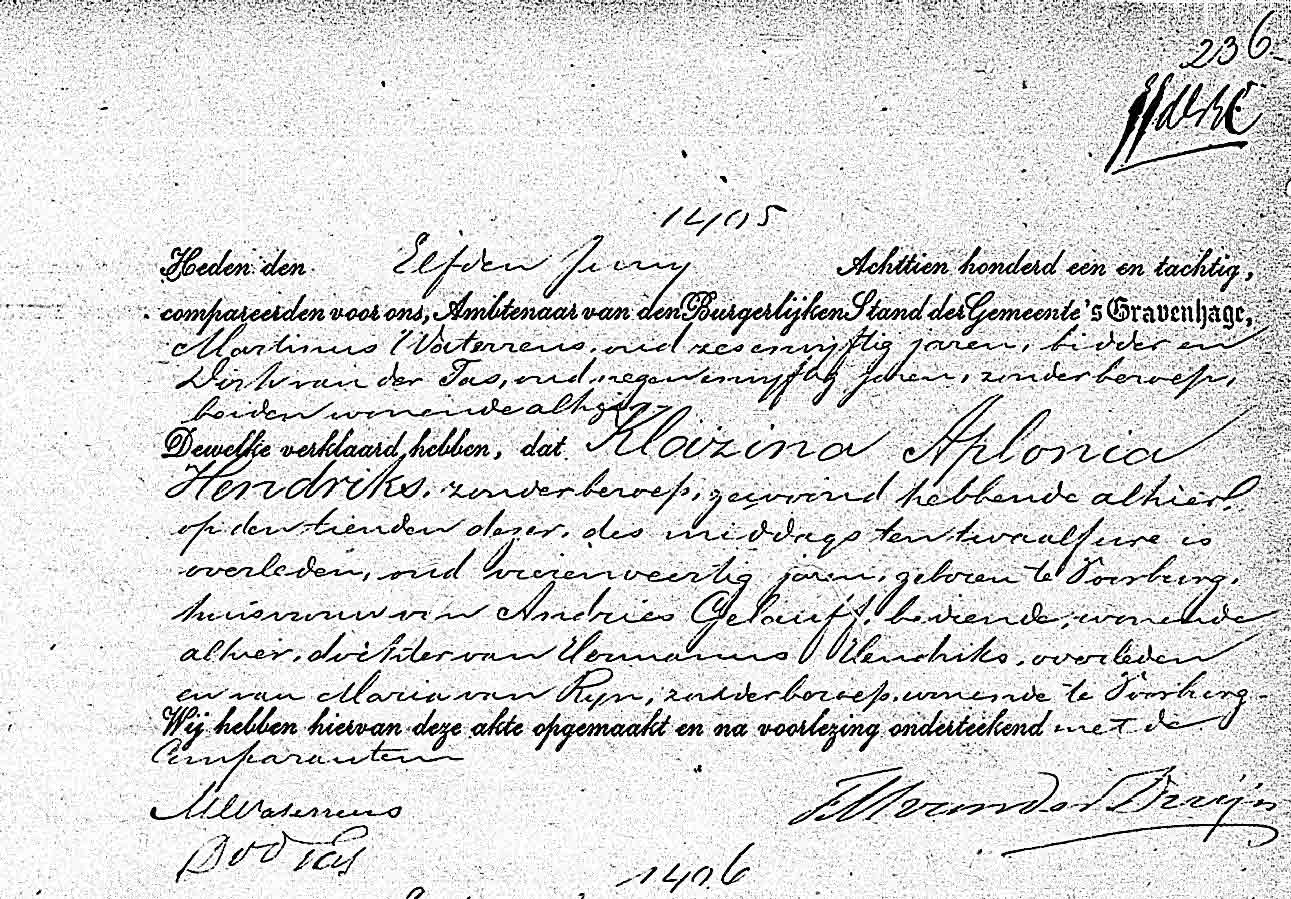 236.
1405
Heden den Elfden Juny Achttien honderd een en tachtig,
compareerden voor ons, Ambtenaar van den Burgerlijken Stand der Gemeente 's Gravenhage,
Martinus Waterreus, oud zesenvyftig jaren, bidder en
Dirk van der Tas, oud negenenvyftig jaren, zonder beroep,
beiden wonende alhier
Dewelke verklaard hebben, dat Klazina Aplonia
Hendriks, zonder beroep, gewoond hebbende alhier,
op den tienden dezer, des middags ten twaalf ure is
overleden, oud vierenveertig jaren, geboren te Voorburg,
huisvrouw van Andries Gelauff, bediende, wonende
alhier, dochter van Hermanus Hendriks, overleden
en van Maria van Ryn, zonder beroep, wonende te Voorburg.
Wij hebben hiervan deze akte opgemaakt en na voorlezing onderteekend met de
Comparanten
MWaterreus
DvdTas
1406